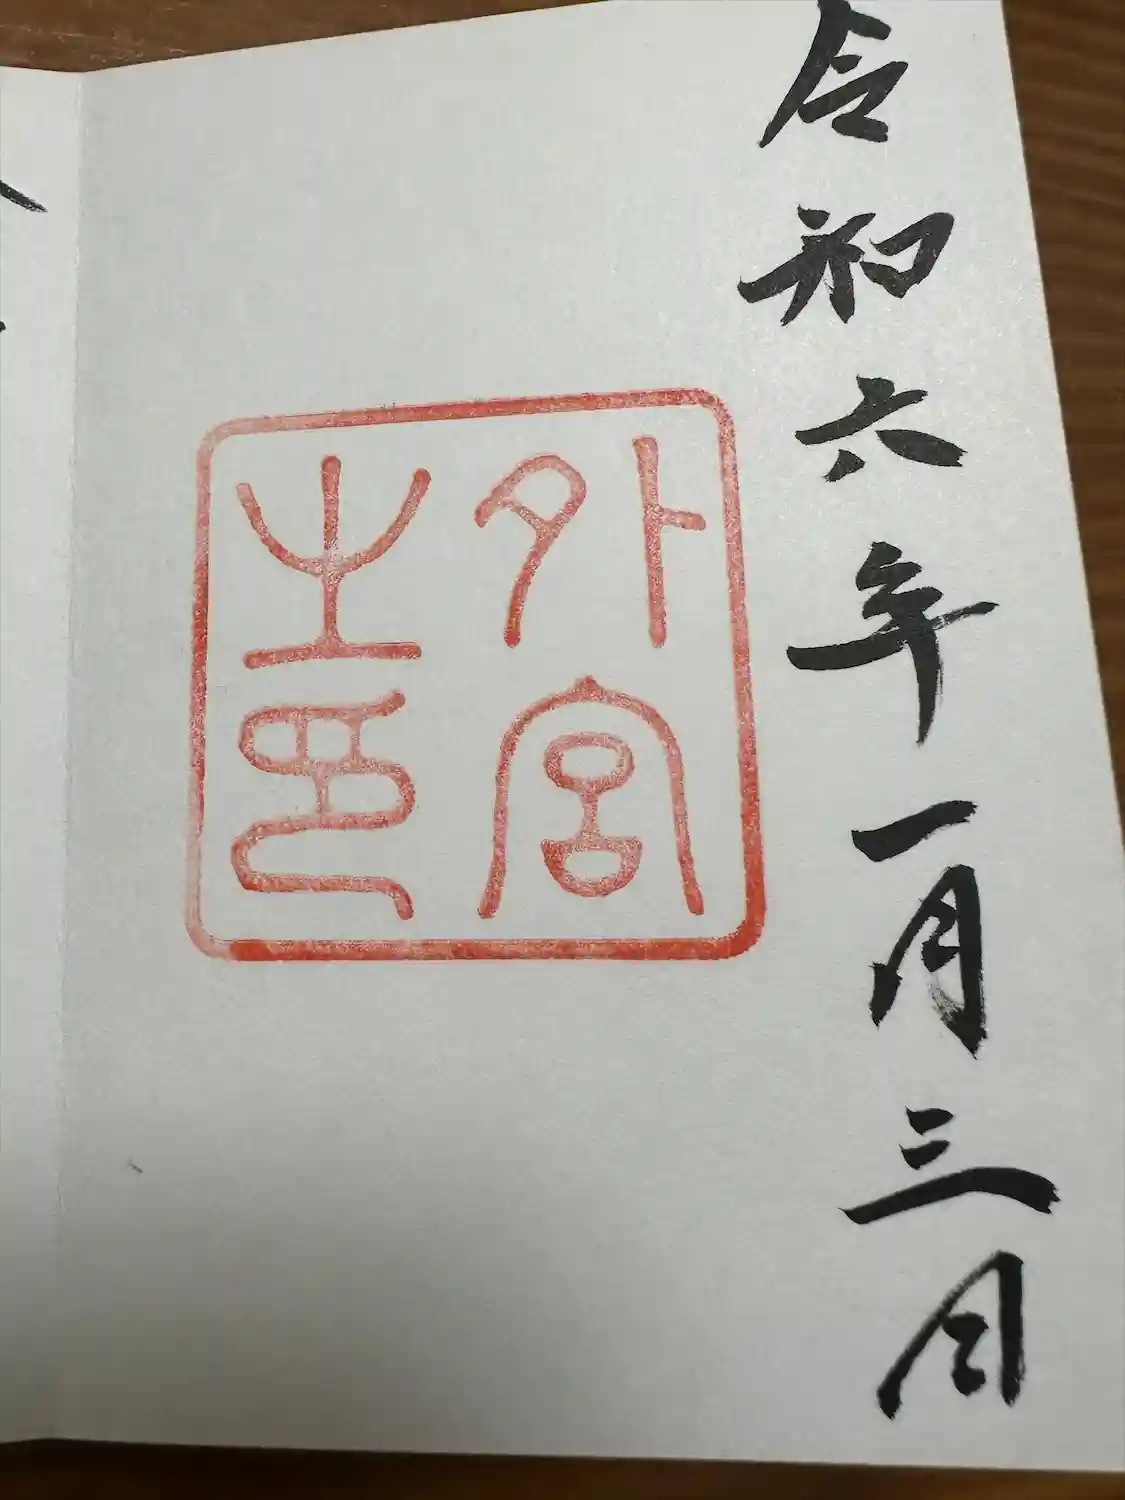 令和六年一月三日
外宮之印